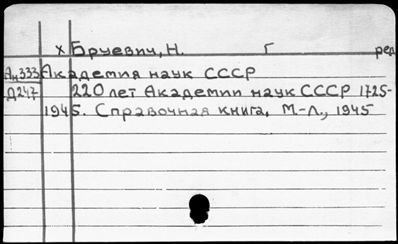 х Бруевич, Н. Г ред
Ан333 Академия наук СССР
Д247 220 лет Академии наук СССР 1725-
1945. Справочная книга, М-Л., 1945